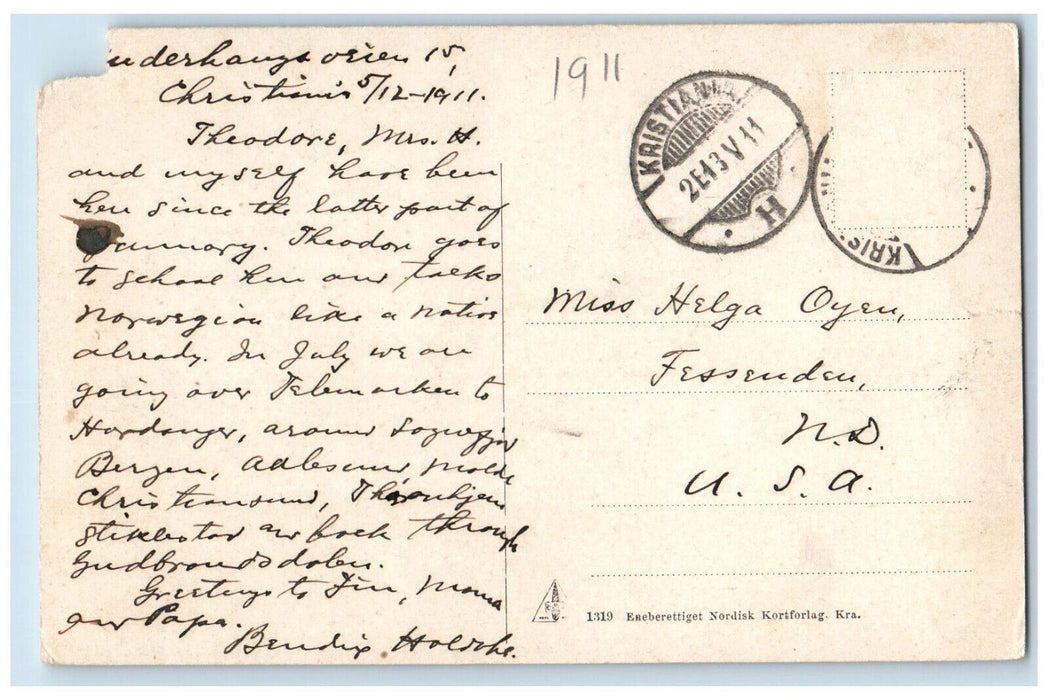 veien 15,
Christiania 5/12-1911.
Theodore, Mrs. H.
and myself have been
here since the latter part of
January. Theodore goes
to school here and talks
Norwegian like a native
already. In July we are
going over Telemarken to
Hardanger, around Sognefjor
Bergen, Aalesund, Molde
Christiansund, Thronhjem
Stiklestad and back through
Gudbrandsdalen.
Greetings to Finn, Mama
and Papa.
Bendix Holdahl.
1911
KRISTIANIA
2E13 V 11
H
KRIS
Miss Helga Oyen,
Fessenden,
N.D.
U. S. A.
1319 Eneberettiget Nordisk Kortforlag. Kra.